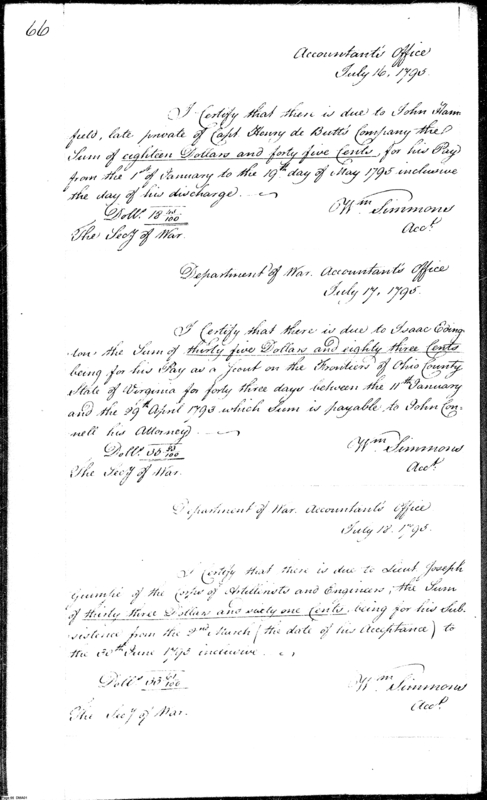 66
Accountant's Office
July 16, 1795.
I Certify that there is due to John Ham
field, late private of Capt Henry de Butts Company the
Sum of eighteen Dollars and forty five Cents, for his Pay
from the 1st of January to the 19th day of May 1795 inclusive
the day of his discharge.
Dolls. 18 45/100
The Secy of War.
Wm Simmons
Acct.
Department of War. Accountant's Office
July 17, 1795.
I Certify that there is due to Isaac Eding
ton the Sum of thirty five Dollars and eighty three Cents
being for his Pay as a Scout on the Frontiers of Ohio County
State of Virginia for forty three days between the 11th January
and the 29th April 1793 which Sum is payable to John Con
nell his Attorney.
Dolls. 35 83/100
The Secy of War.
Wm Simmons
Acct.
Department of War. Accountant's Office
July 18. 1795.
I Certify that there is due to Lieut Joseph
of the Corps of Artillerists and Engineers, the Sum
of thirty three Dollars and sixty one Cents, being for his Sub
sistence from the 2nd March (the date of his Acceptance) to
the 30th June 1795 inclusive.
Dolls. 33 61/100
Wm Simmons
Acct.
The Secy of War.